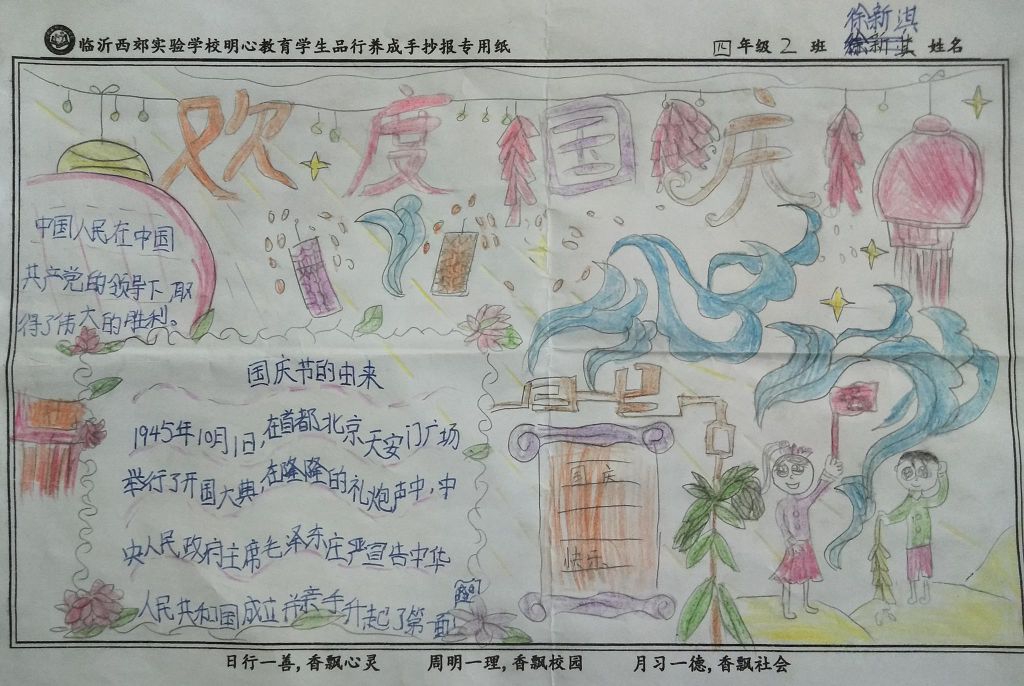 临沂西郊实验学校明心教育学生品行养成手抄报专用纸
四年级2班 徐新淇 姓名
欢度国庆
中国人民在中国
共产党的领导下,取
得了伟大的胜利。
国庆节的由来
1945年10月1日,在首都北京天安门广场
举行了开国大典,在隆隆的礼炮声中,中
央人民政府主席毛泽东庄严宣告中华
人民共和国成立并亲手升起了第一面
国庆
快乐
日行一善,香飘心灵 周明一理,香飘校园 月习一德,香飘社会